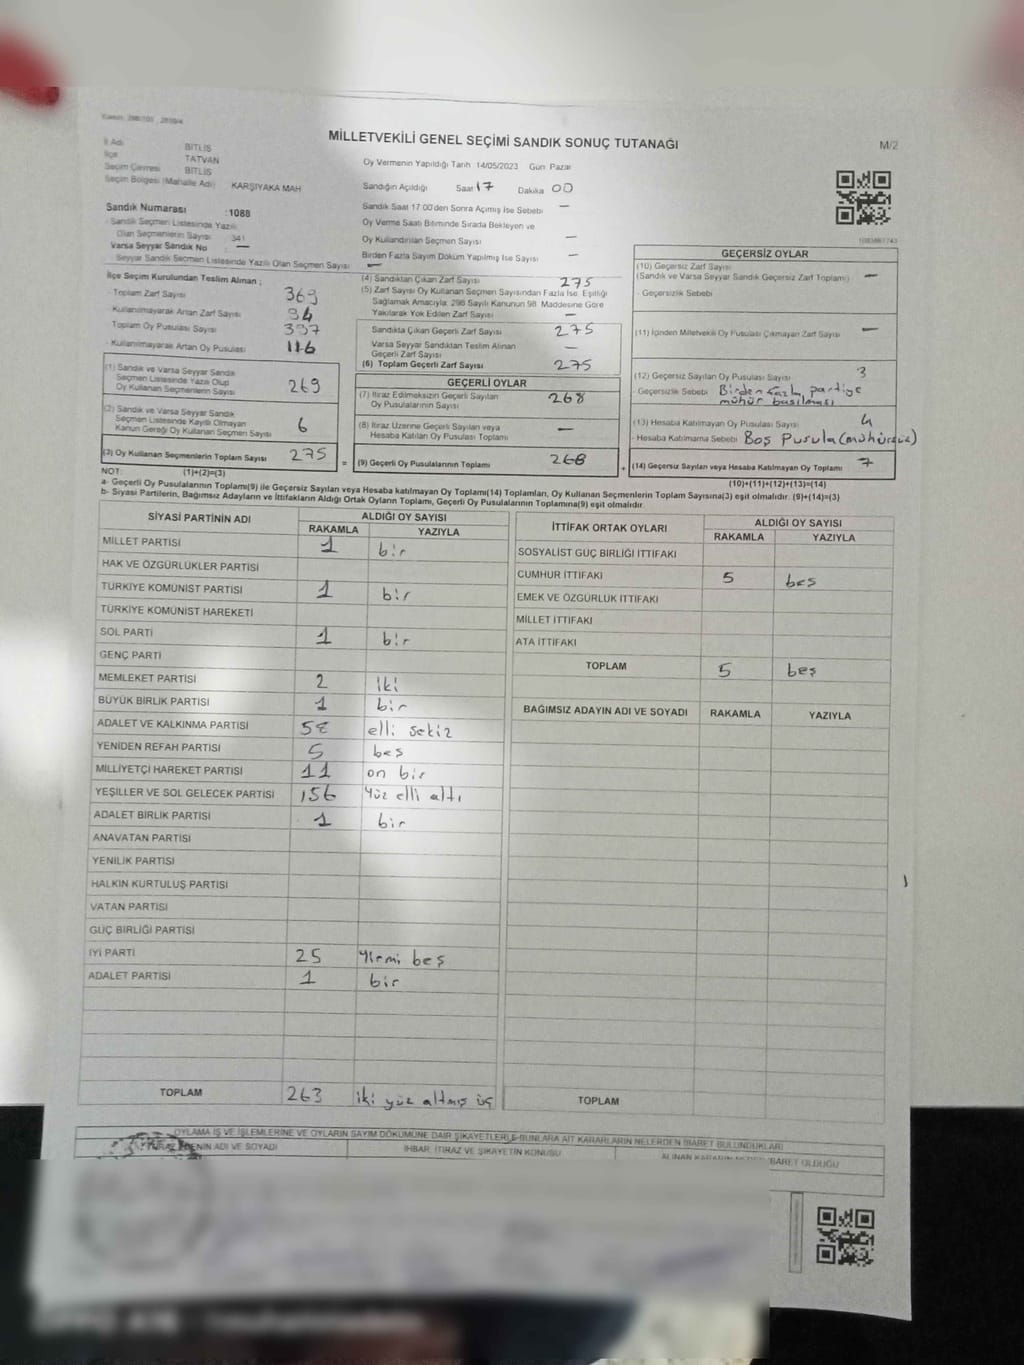 MİLLETVEKİLİ GENEL SEÇİMİ SANDIK SONUÇ TUTANAĞI
M/2
İl Adı BİTLİS
İlçe TATVAN
Seçim Çevresi BİTLİS
Seçim Bölgesi (Mahalle Adı) KARŞIYAKA MAH
Sandık Numarası :1088
- Sandık Seçmen Listesinde Yazılı
Olan Seçmenlerin Sayısı 341
Varsa Seyyar Sandık No —
Seyyar Sandık Seçmen Listesinde Yazılı Olan Seçmen Sayısı —
Oy Vermenin Yapıldığı Tarih 14/05/2023 Gün Pazar
Sandığın Açıldığı Saat 17 Dakika 00
Sandık Saat 17:00'den Sonra Açılmış İse Sebebi —
Oy Verme Saati Bitiminde Sırada Bekleyen ve
Oy Kullandırılan Seçmen Sayısı —
Birden Fazla Sayım Döküm Yapılmış İse Sayısı —
İlçe Seçim Kurulundan Teslim Alınan ;
- Toplam Zarf Sayısı 369
- Kullanılmayarak Artan Zarf Sayısı 94
Toplam Oy Pusulası Sayısı 397
- Kullanılmayarak Artan Oy Pusulası 116
(1) Sandık ve Varsa Seyyar Sandık
Seçmen Listesinde Yazılı Olup
Oy Kullanan Seçmenlerin Sayısı 269
(2) Sandık ve Varsa Seyyar Sandık
Seçmen Listesinde Kayıtlı Olmayan
Kanun Gereği Oy Kullanan Seçmen Sayısı 6
(3) Oy Kullanan Seçmenlerin Toplam Sayısı 275
(4) Sandıktan Çıkan Zarf Sayısı 275
(5) Zarf Sayısı Oy Kullanan Seçmen Sayısından Fazla İse, Eşitliği
Sağlamak Amacıyla; 298 Sayılı Kanunun 98. Maddesine Göre
Yakılarak Yok Edilen Zarf Sayısı —
Sandıkta Çıkan Geçerli Zarf Sayısı 275
Varsa Seyyar Sandıktan Teslim Alınan
Geçerli Zarf Sayısı —
(6) Toplam Geçerli Zarf Sayısı 275
GEÇERLİ OYLAR
(7) İtiraz Edilmeksizin Geçerli Sayılan
Oy Pusulalarının Sayısı 268
(8) İtiraz Üzerine Geçerli Sayılan veya
Hesaba Katılan Oy Pusulası Toplamı —
= (9) Geçerli Oy Pusulalarının Toplamı 268
1083861743
GEÇERSİZ OYLAR
(10) Geçersiz Zarf Sayısı
(Sandık ve Varsa Seyyar Sandık Geçersiz Zarf Toplamı) —
- Geçersizlik Sebebi
(11) İçinden Milletvekili Oy Pusulası Çıkmayan Zarf Sayısı —
(12) Geçersiz Sayılan Oy Pusulası Sayısı 3
- Geçersizlik Sebebi Birden fazla partiye
mühür basılması
(13) Hesaba Katılmayan Oy Pusulası Sayısı 4
- Hesaba Katılmama Sebebi Boş Pusula (mühürsüz)
+ (14) Geçersiz Sayılan veya Hesaba Katılmayan Oy Toplamı 7
NOT: (1)+(2)=(3)
(10)+(11)+(12)+(13)=(14)
a- Geçerli Oy Pusulalarının Toplamı(9) ile Geçersiz Sayılan veya Hesaba katılmayan Oy Toplamı(14) Toplamları, Oy Kullanan Seçmenlerin Toplam Sayısına(3) eşit olmalıdır. (9)+(14)=(3)
b- Siyasi Partilerin, Bağımsız Adayların ve İttifakların Aldığı Ortak Oyların Toplamı, Geçerli Oy Pusulalarının Toplamına(9) eşit olmalıdır.
SİYASİ PARTİNİN ADI ALDIĞI OY SAYISI
RAKAMLA YAZIYLA
MİLLET PARTİSİ 1 bir
HAK VE ÖZGÜRLÜKLER PARTİSİ
TÜRKİYE KOMÜNİST PARTİSİ 1 bir
TÜRKİYE KOMÜNİST HAREKETİ
SOL PARTİ 1 bir
GENÇ PARTİ
MEMLEKET PARTİSİ 2 iki
BÜYÜK BİRLİK PARTİSİ 1 bir
ADALET VE KALKINMA PARTİSİ 58 elli sekiz
YENİDEN REFAH PARTİSİ 5 beş
MİLLİYETÇİ HAREKET PARTİSİ 11 on bir
YEŞİLLER VE SOL GELECEK PARTİSİ 156 Yüz elli altı
ADALET BİRLİK PARTİSİ 1 bir
ANAVATAN PARTİSİ
YENİLİK PARTİSİ
HALKIN KURTULUŞ PARTİSİ
VATAN PARTİSİ
GÜÇ BİRLİĞİ PARTİSİ
İYİ PARTİ 25 Yirmi beş
ADALET PARTİSİ 1 bir
TOPLAM 263 iki yüz altmış üç
İTTİFAK ORTAK OYLARI ALDIĞI OY SAYISI
RAKAMLA YAZIYLA
SOSYALİST GÜÇ BİRLİĞİ İTTİFAKI
CUMHUR İTTİFAKI 5 beş
EMEK VE ÖZGÜRLÜK İTTİFAKI
MİLLET İTTİFAKI
ATA İTTİFAKI
TOPLAM 5 beş
BAĞIMSIZ ADAYIN ADI VE SOYADI RAKAMLA YAZIYLA
TOPLAM
OYLAMA İŞ VE İŞLEMLERİNE VE OYLARIN SAYIM DÖKÜMÜNE DAİR ŞİKAYETLERLE BUNLARA AİT KARARLARIN NELERDEN İBARET BULUNDUKLARI
ADI VE SOYADI
İHBAR, İTİRAZ VE ŞİKAYETİN KONUSU
ALINAN KARARIN NEDEN İBARET OLDUĞU